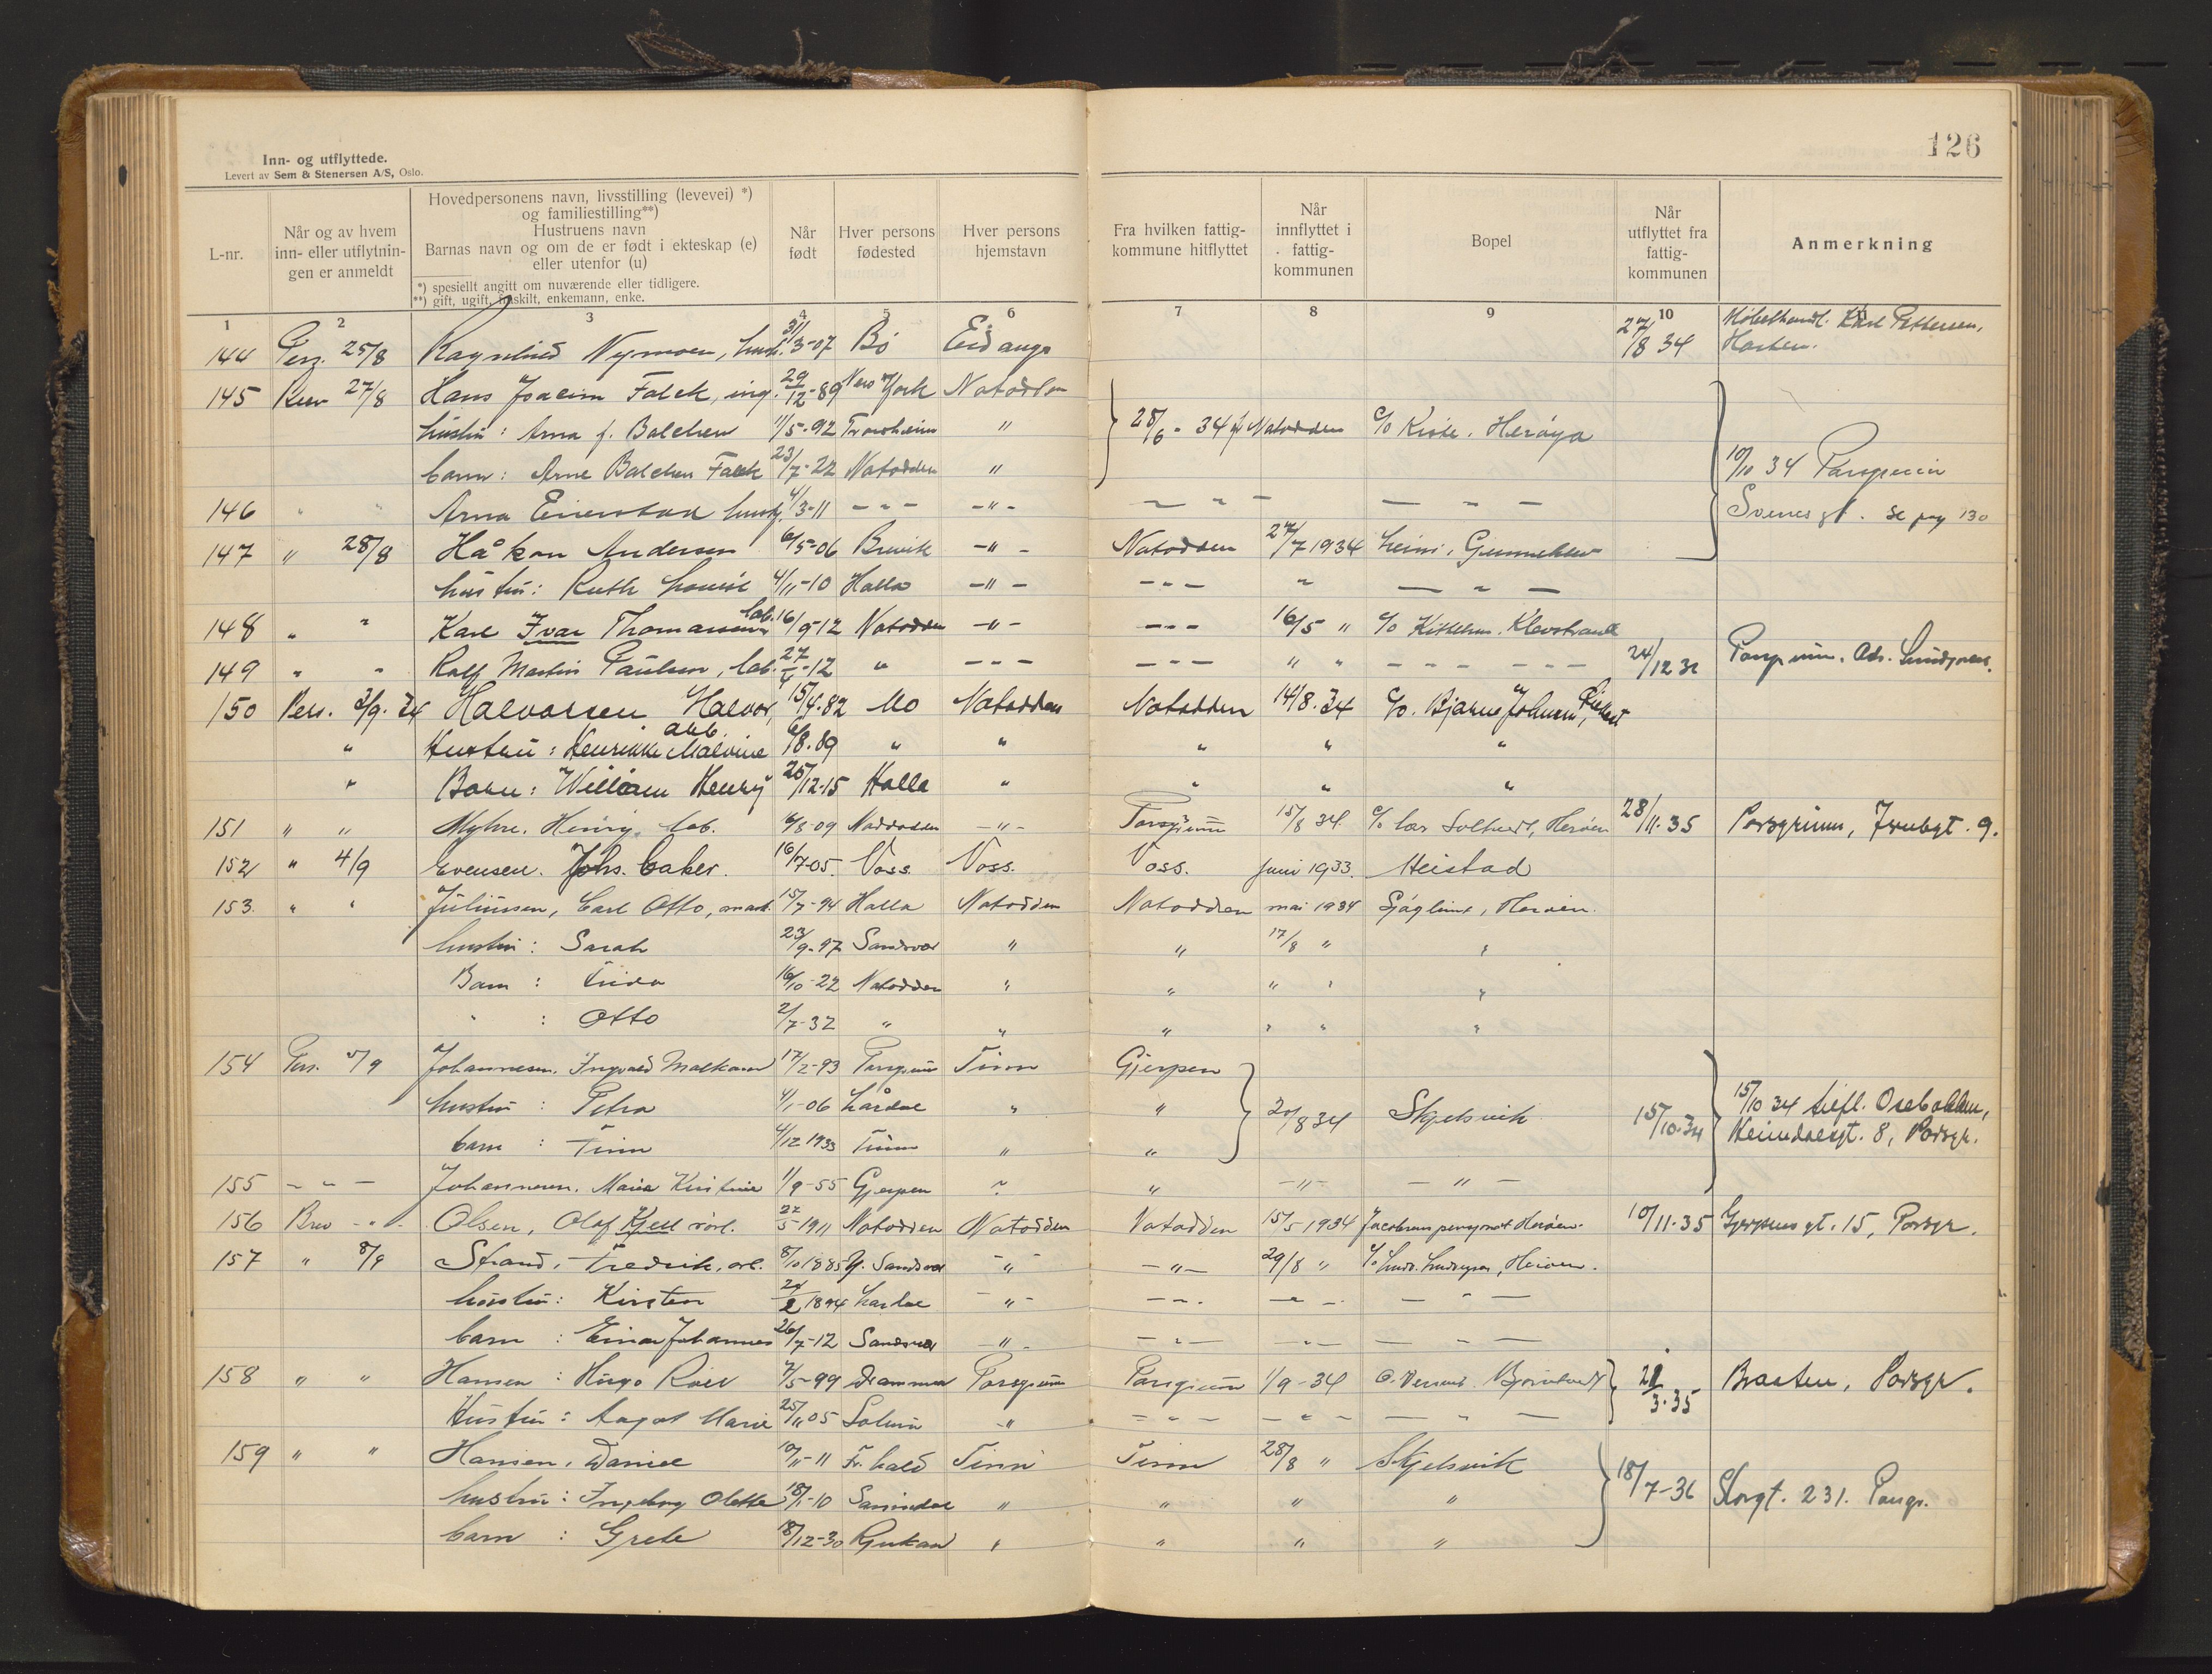 126
Inn- og utflyttede.
Levert av Sem & Stenersen A/S, Oslo.
L-nr.
Når og av hvem inn- eller utflytnin- gen er anmeldt
Hovedpersonens navn, livsstilling (levevei) *) og familiestilling**) Hustruens navn Barnas navn og om de er født i ekteskap (e) eller utenfor (u)
*) spesiellt angitt om nuværende eller tidligere.
**) gift, ugift, fraskilt, enkemann, enke.
Når født
Hver persons fødested
Hver persons hjemstavn
Fra hvilken fattig- kommune hitflyttet
Når innflyttet i fattig- kommunen
Bopel
Når utflyttet fra fattig- kommunen
Anmerkning
1 2 3 4 5 6 7 8 9 10
144 25/8 Nymoen, 31/3-07 Bø Eidanger 27/8 34 Karl Pettersen,
145 27/8 Hans Joacim Falck, ing. 29/12-89 New York Notodden
hustru: Arna f. Balchen 11/5-92 Trondheim " 28/6-34 fr Notodden c/o Herøya
barn: Arne Balchen Falck 23/7-22 Notodden " 10/10 34 Porsgrunn
146 " " Arna /3-11 - " - - " - - " - - " - se pag 130
147 " 28/8 Håkon Andersen 6/5-06 Brevik - " - Notodden 27/7 1934
hustru: Ruth Louise 4/11-10 Holla - " - - " - " - " -
148 " " Karl Ivar Thomassen lab. 16/9-12 Notodden - " - - " - 16/5 " c/o Klevstrand
149 " " Rolf Martin Paulsen, lab. 27/4-12 " - " - - " - " " - " - - " - 24/12 Porsgrunn.
150 Pers. 3/9. 34 Halvorsen Halvor, arb. 15/4.82 Mo Notodden Notodden 14/8.34 c/o. Bjarne Johnsen,
" Hustru: Henrikke Malvine 6/8.89 " " " " "
" Barn: William Henry 25/12.15 Holla " " " "
151 " " Myhre. Henry. lab. 6/8-09 Notodden - " - Porsgrunn 15/8 34. Herøen 28/11.35 Porsgrunn, 9.
152 " 4/9 Evensen. Johs. baker. 16/7-05. Voss. Voss. Voss. juni 1933. Heistad
153. " " Juliussen, Carl Otto, 15/7-94 Holla Notodden Notodden mai 1934 Herøen.
hustru: Sarah 23/9-97 Sandsvær " " 17/8 " "
Barn : 16/10-22 Notodden " " " " "
" : Otto 2/7-32 " " " " " "
154 Pers. 5/9 Johannesen. Ingvald 17/2-93 Porsgrunn Tinn Gjerpen
hustru : Petra 4/1-06 Lårdal " " 20/8 34 Skjelsvik 15/10.34 15/10 34 Osebakken,
barn : Finn 4/12 1933 Tinn " " Heimdalsgt. 8, Porsgr.
155 - " - Johannesen. Maria Kristine 1/9-55 Gjerpen " " - " - - " -
156 Brev - " - Olsen, Olaf Kjell rørl. 22/5-1911 Notodden Notodden Notodden 15/5 1934 Jacobsens pensjonat Herøen. 10/11.35 Gjerpensgt. 15, Porsgr.
157 " 8/9 Strand, Fredrik, arb. 8/10 1885 Sandsvær - " - - " - 29/8 " Herøen.
hustru: Kirsten 24/2 1894 Lardal - " - - " - - " - - " -
barn : Einar Johannes 26/7-12 Sandsvær - " - - " - - " - - " -
158 " " Hansen : Hugo /5-99 Drammen Porsgrunn Porsgrunn 1/9-34 Bjørntvedt 21/3.35 Porsgr.
Hustru: Aagot Marie 25/11 05 Solum - " - " - - " - - " -
159 " " Hansen, Daniel 10/11-11 Fr.hald Tinn Tinn 28/8 " Skjelsvik
hustru: Ingeborg Olette 18/1-10 Sannidal " " " " 18/7-36 Storgt. 231. Porsgr.
barn : Grete 18/12-30 Rjukan " " " "